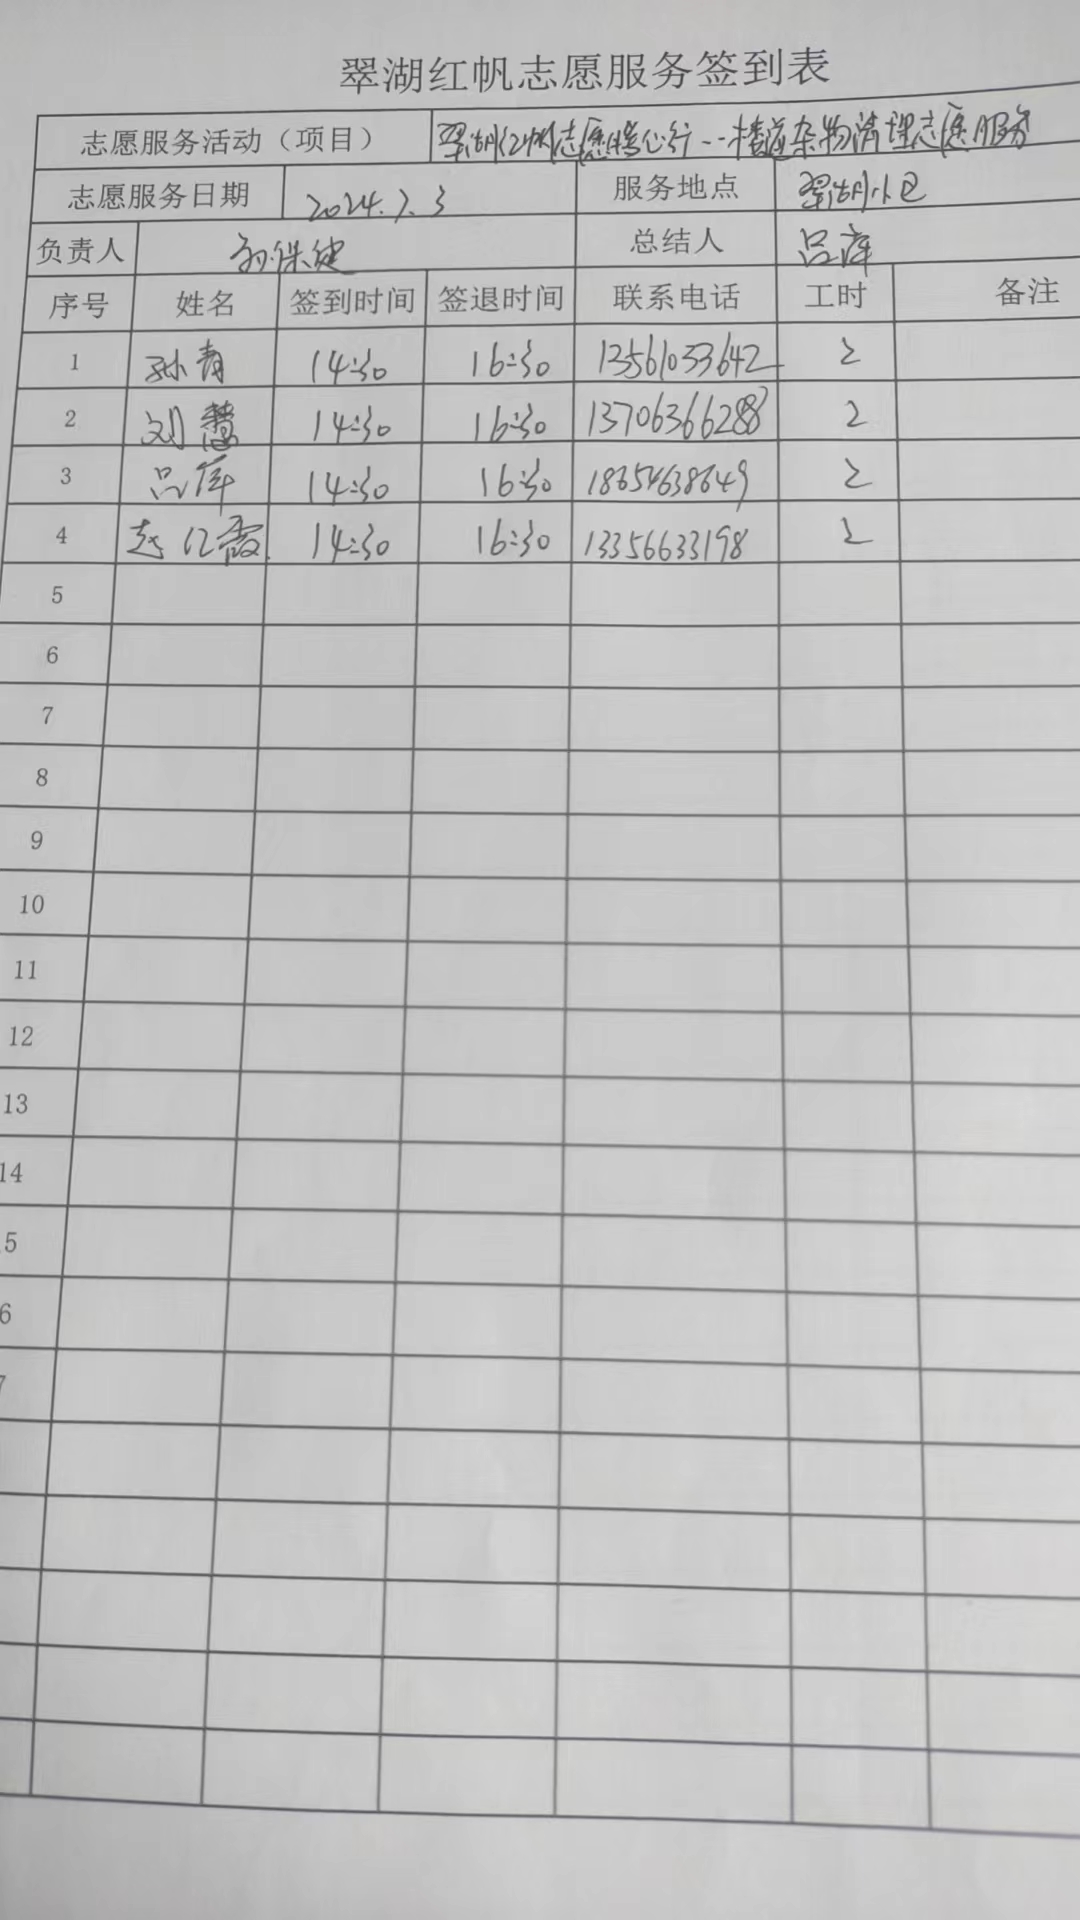 翠湖红帆志愿服务签到表
志愿服务活动（项目） 翠湖红帆志愿楼心行--楼道杂物清理志愿服务
志愿服务日期 2024.7.3 服务地点 翠湖小区
负责人 孙保健 总结人 吕萍
序号 姓名 签到时间 签退时间 联系电话 工时 备注
1 孙青 14:30 16:30 13561033642 2
2 刘慧 14:30 16:30 13706366288 2
3 吕萍 14:30 16:30 18654638649 2
4 赵红霞 14:30 16:30 13356633198 2
5
6
7
8
9
10
11
12
13
14
5
6
7